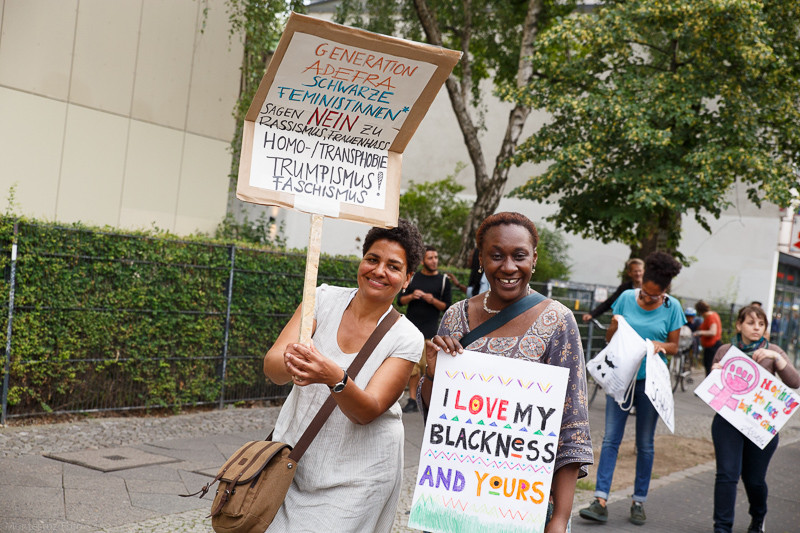 GENERATION
ADEFRA
SCHWARZE
FEMINISTINNEN*
SAGEN NEIN ZU
RASSISMUS, FRAUENHASS
HOMO-/TRANSPHOBIE
TRUMPISMUS
FASCHISMUS!
I LOVE MY
BLACKNESS
AND YOURS
Nothing
to lose
but our chains